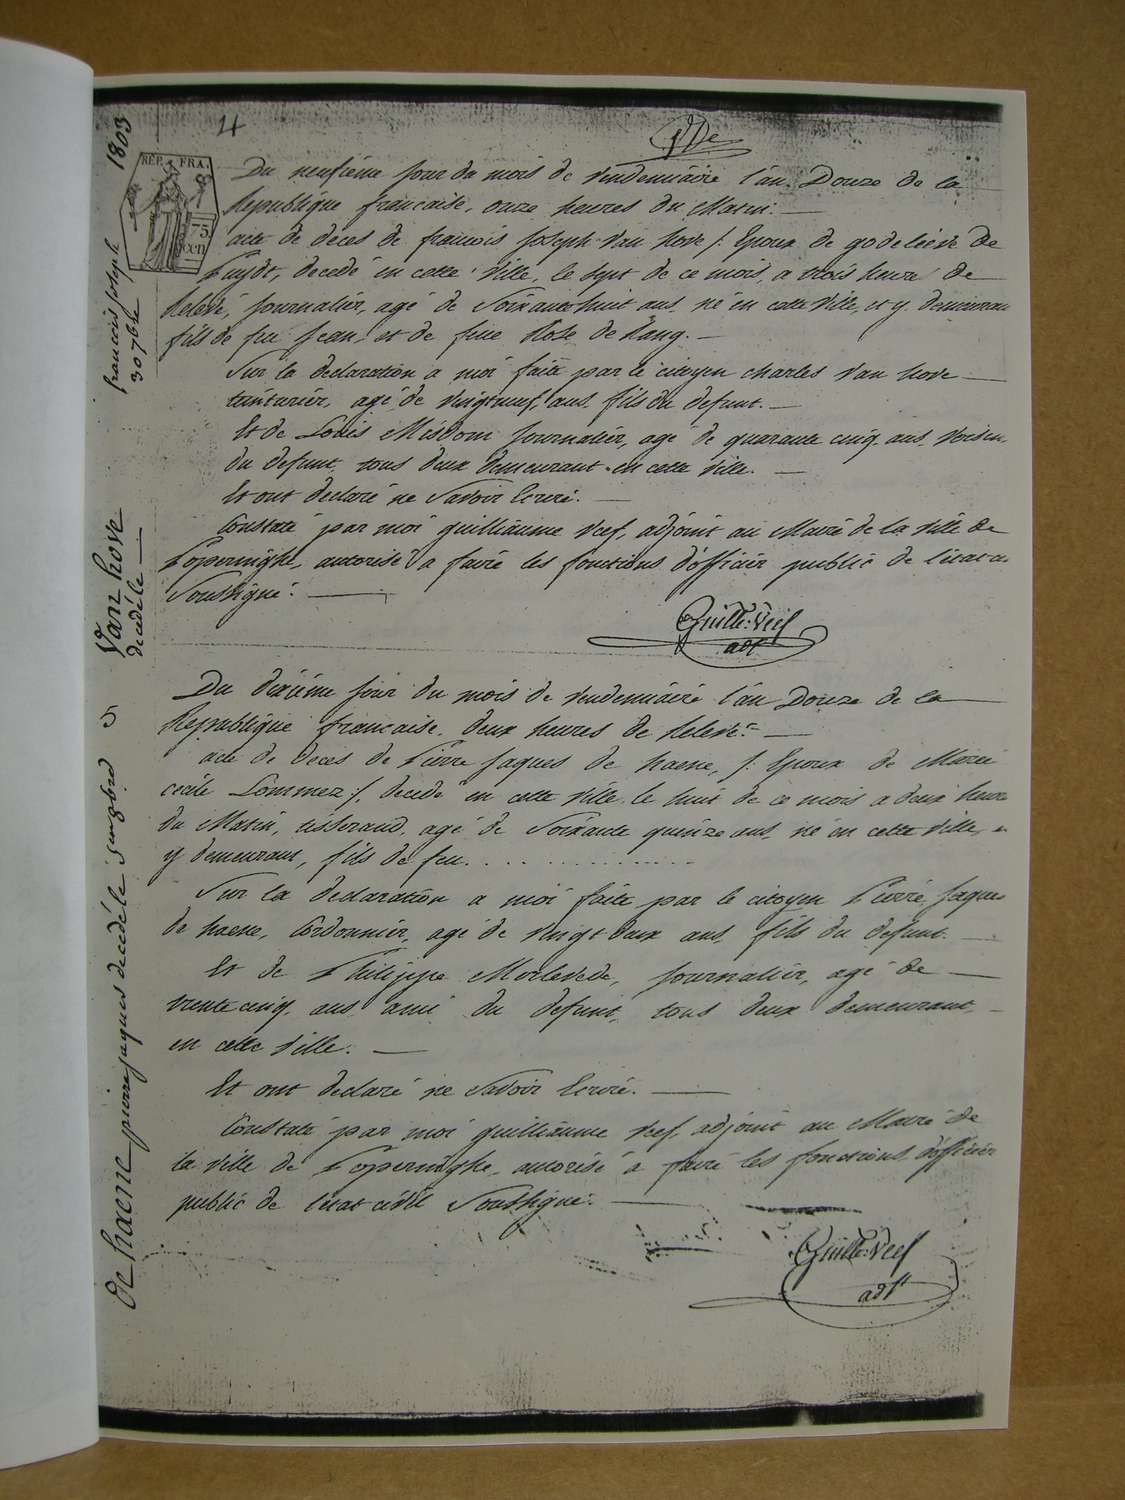 4
REP. FRA.
75
cen
1803
Van hove francois joseph
decedé le 30 7bre
Du neufiéme jour du mois de Vendemiaire l'an Douze de la
Republique française, onze heures du Matin.
acte de deces de francois Joseph Van hove /: Epoux de godelieve de
Puydt, decedé en cette Ville, le sept de ce mois, a trois heure de
Relevé, Journalier, agé de Soixante huit ans, né en cette Ville, et y demeurant
fils de feu Jean, et de feue Rose de Vang.
Sur la declaration a moi faite par le citoyen Charles Van hove
teinturier, agé de Vingtneuf ans, fils du defunt.
Et de Louis Misdom Journalier, agé de quarante cinq ans, Voisin
du defunt, tous deux demeurant en cette Ville.
Et ont declaré ne Savoir Ecrire.
Constaté par moi guilliaume Veef, adjoint au Maire de la Ville de
Poperinghe, autorisé a faire les fonctions d'officier public de l'etat c.
Soussigné.
Guille: Veef
adt
5
De haene pierre jaques decedé le
Du dixiéme jour du mois de Vendemiaire l'an Douze de la
Republique française, deux heures de Relevé.
acte de deces de Pierre Jaques de haene, /: Epoux de Marie
cecile Lommez :/, decedé en cette Ville, le huit de ce mois a deux heure
du Matin, tisserand, agé de Soixante quinze ans, né en cette Ville, e
y demeurant, fils de feu. . . . . . . . . . . . . .
Sur la declaration a moi faite par le citoyen Pierre Jaques
de haene, Cordonnier, agé de Vingt deux ans, fils du defunt.
Et de Philippe Merlevede, Journalier, agé de
trente cinq ans ami du defunt, tous deux demeurant,
en cette Ville.
Et ont declaré ne Savoir Ecrire.
Constaté par moi guilliaume Veef, adjoint au Maire de
la Ville de Poperinghe, autorisé a faire les fonctions d'officier
public de l'etat civil Soussigné.
Guille: Veef
adt